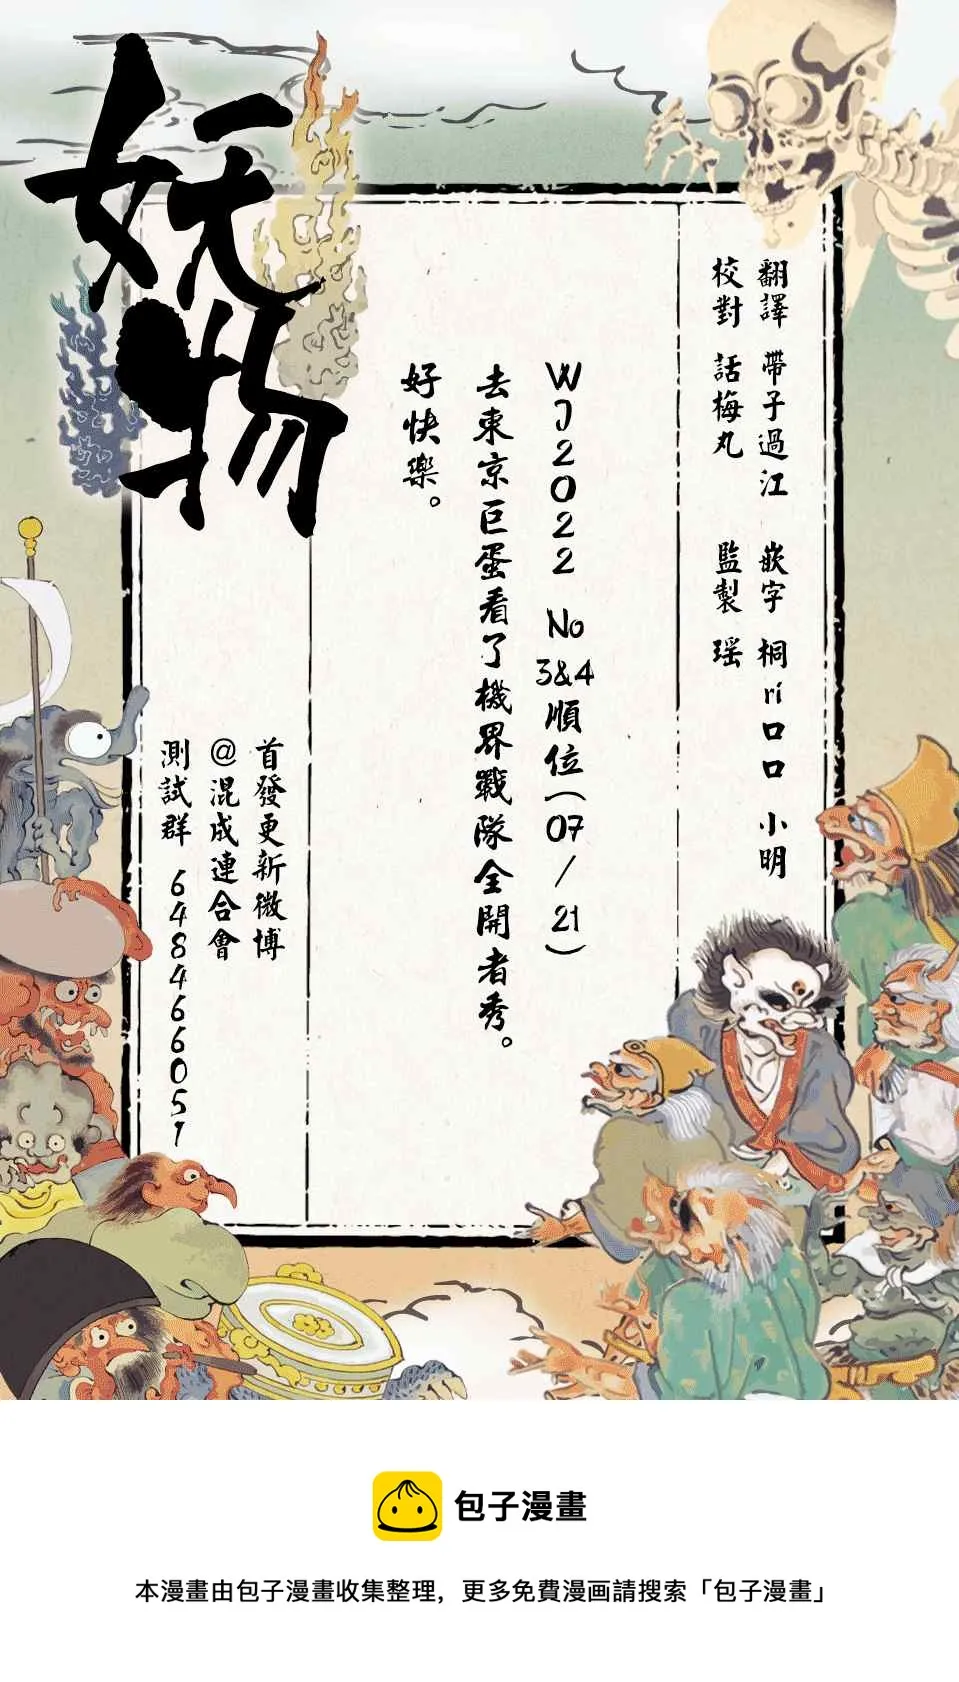 妖物
翻譯 帶子過江 嵌字 桐rí口口 小明
校對 話梅丸 監製 瑶
WJ2022 No 3&4順位(07/21)
去東京巨蛋看了機界戰隊全開者秀。
好快樂。
首發更新微博
@混成連合會
測試群 648466051
包子漫畫
本漫畫由包子漫畫收集整理，更多免費漫画請搜索「包子漫畫」